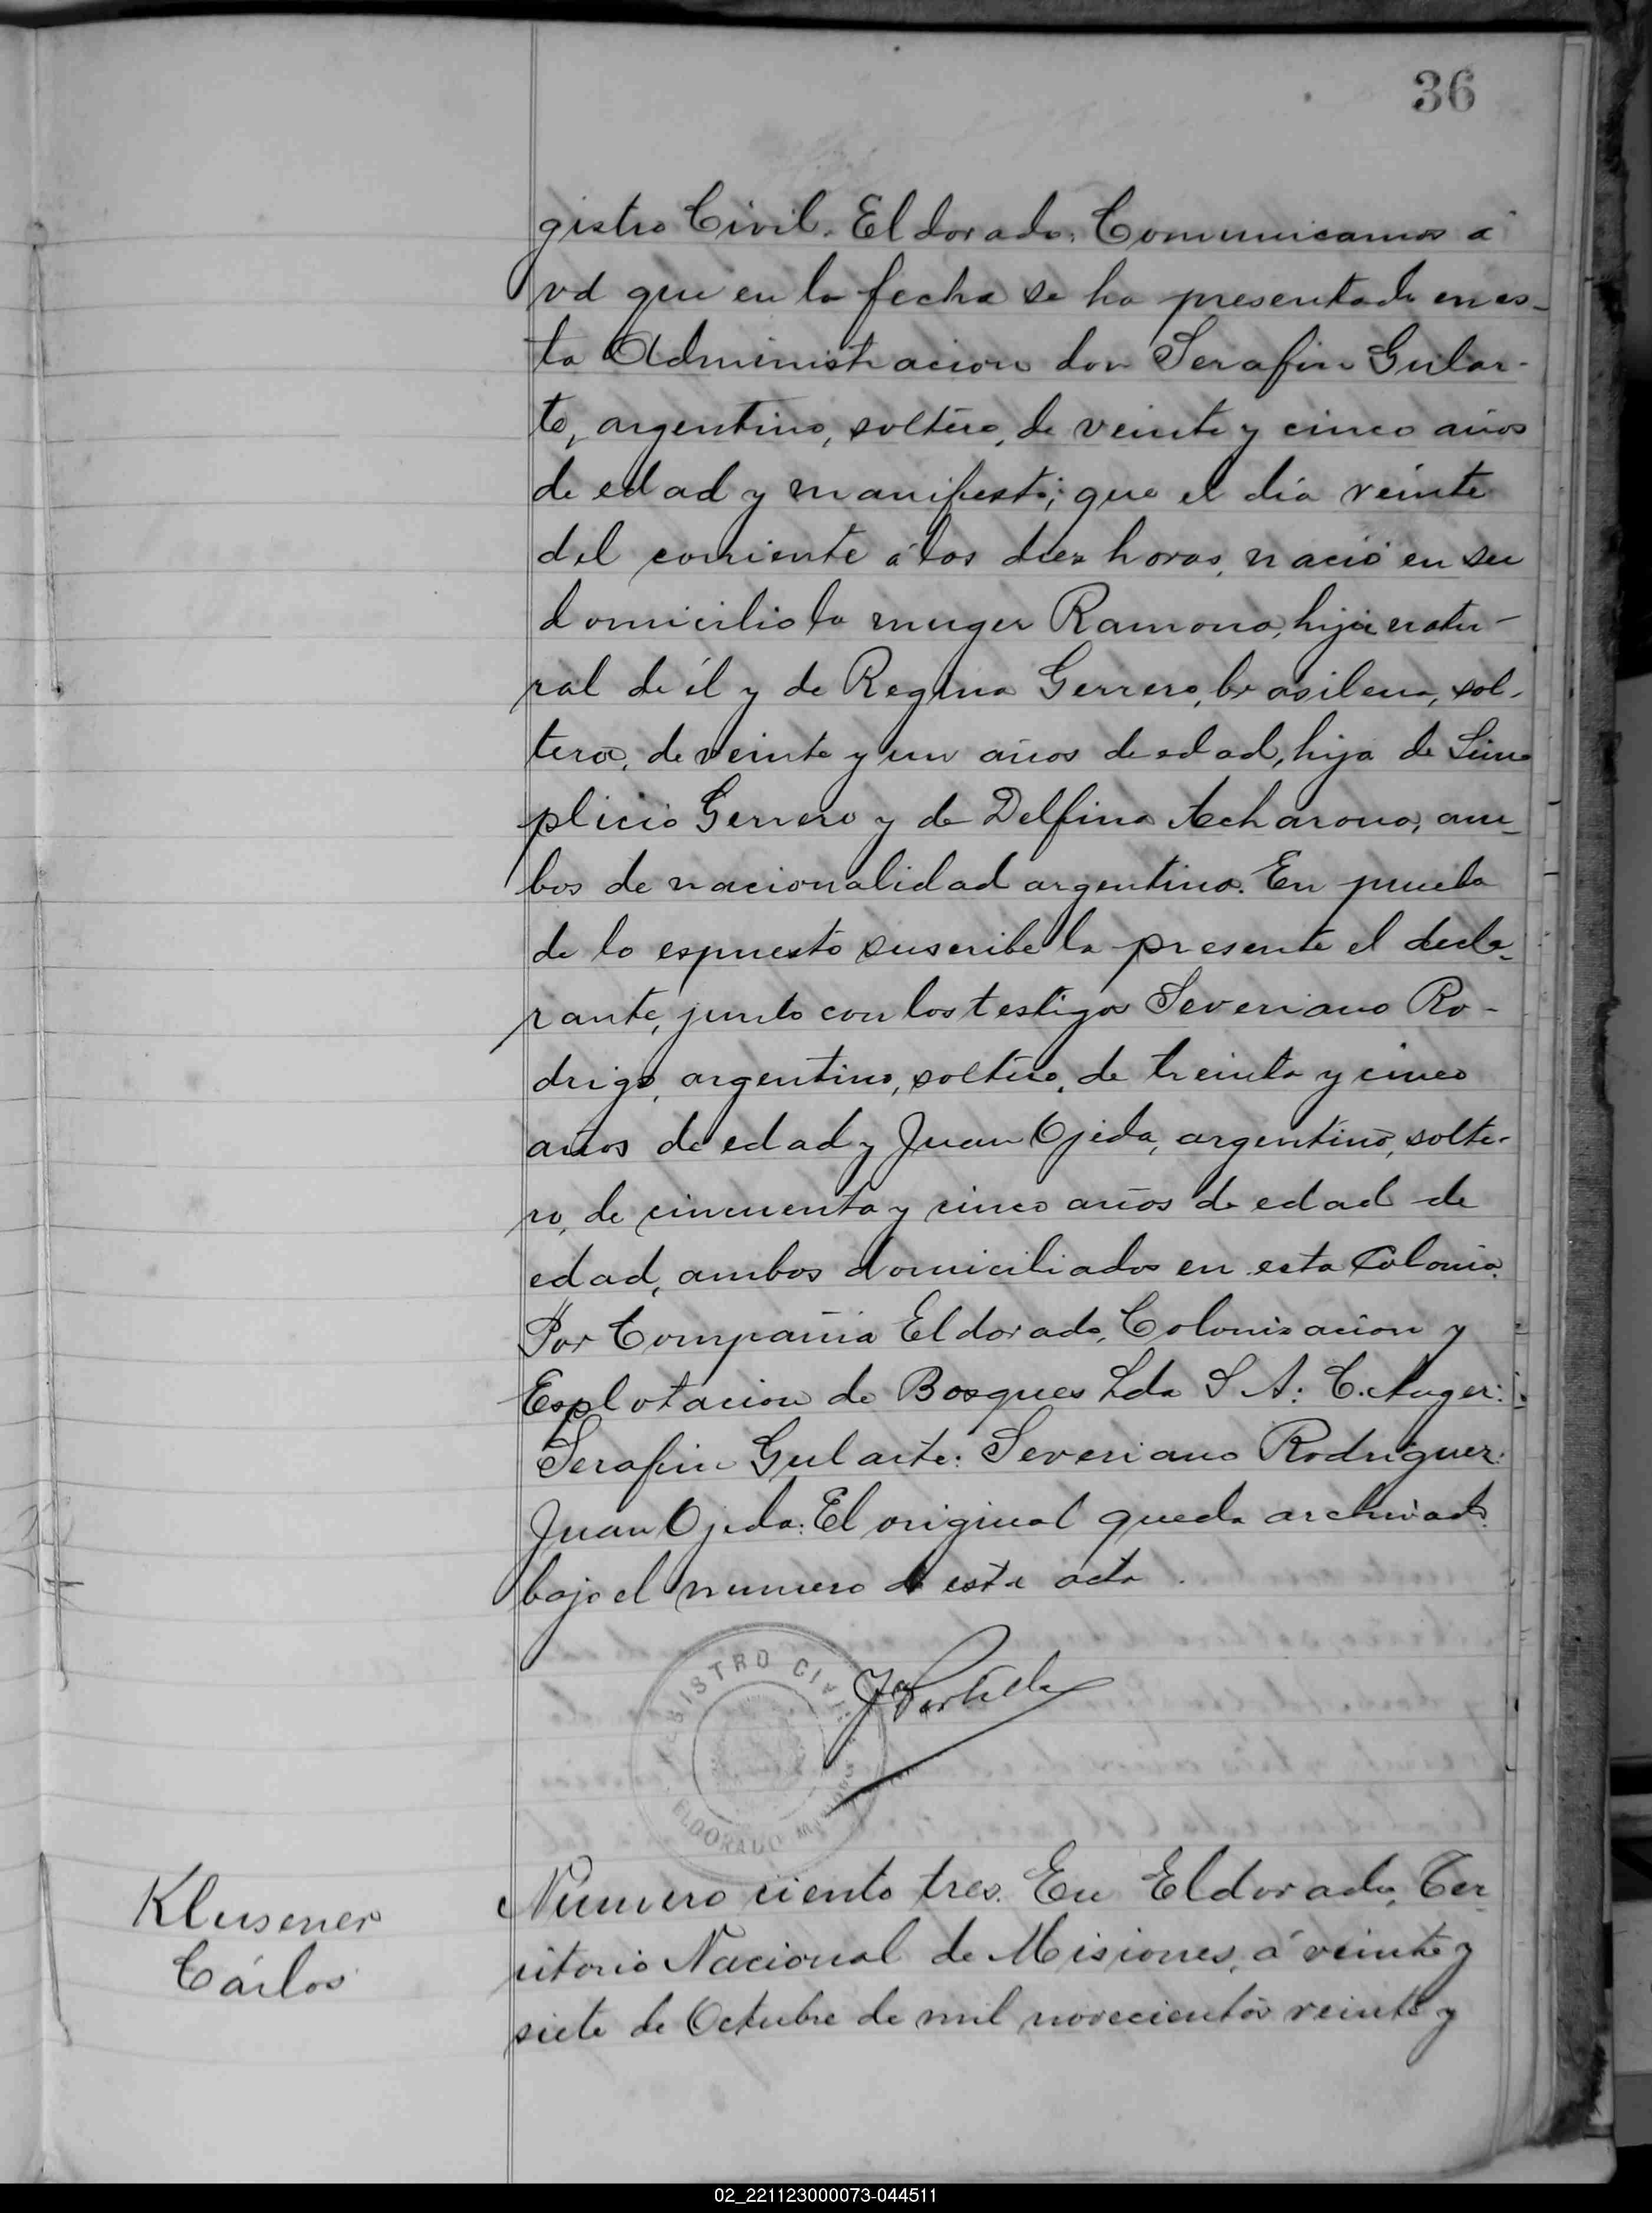 36
gistro Civil. Eldorado: Comunicamos á
vd que en la fecha se ha presentado en es-
ta Administracion don Serafin Gular-
te, argentino, soltero, de veinte y cinco años
de edad y manifestó; que el día veinte
del corriente á las diez horas, nació en su
domicilio la muger Ramona, hija natu-
ral de él y de Regina Gerrero, brasilena, sol-
tera, de veinte y un años de edad, hija de Sim
plicio Gerrero y de Delfina Acharona, am-
bos de nacionalidad argentina. En prueba
de lo espuesto suscribe la presente el decla-
rante, junto con los testigos Severiano Ro-
drigo, argentino, soltero, de treinta y cinco
años de edad y Juan Ojeda, argentino, solte-
ro, de cincuenta y cinco años de edad de
edad, ambos domiciliados en esta Colonia.
Por Compañia Eldorado, Colonisacion y
Esplotacion de Bosques Lda S A: C. Auger:
Serafin Gularte: Severiano Rodriguez:
Juan Ojeda: El original queda archivado
bajo el numero de esta acta.
REGISTRO CIVIL
ELDORADO MISIONES
Klusener
Cárlos
Numero ciento tres. En Eldorado, Ter-
ritorio Nacional de Misiones, á veinte y
siete de Octubre de mil novecientos veinte y
02_221123000073-044511